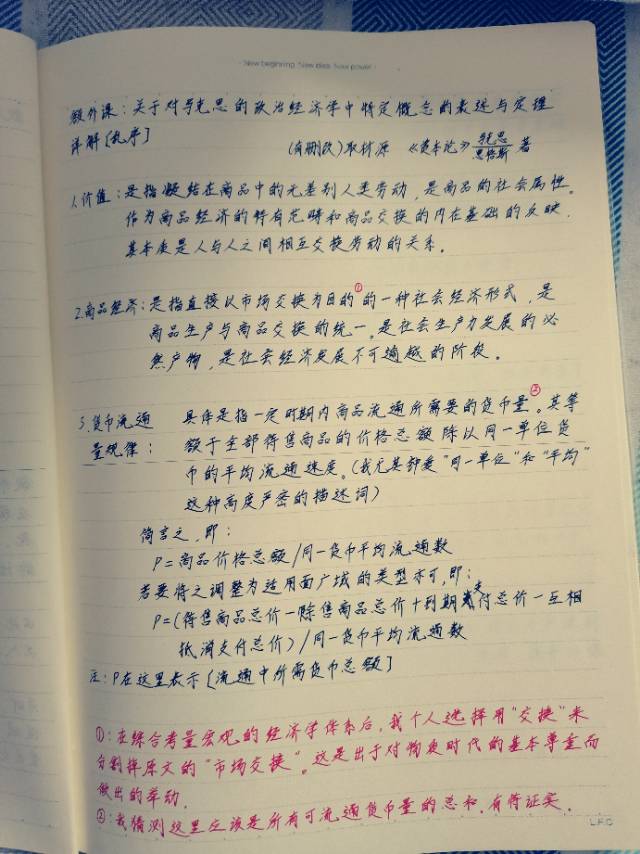 New beginning New idea New power
额外课：关于对马克思的政治经济学中特定概念的表述与定理
详解[乱序]
(有删改)取材源 《资本论》马克思 恩格斯 著
1.价值：是指凝结在商品中的无差别人类劳动，是商品的社会属性。
作为商品经济的特有范畴和商品交换的内在基础的反映，
其本质是人与人之间相互交换劳动的关系。
2.商品经济：是指直接以市场交换为目的①的一种社会经济形式，是
商品生产与商品交换的统一，是社会生产力发展的必
然产物，是社会经济发展不可逾越的阶段。
3.货币流通 具体是指一定时期内商品流通所需要的货币量②。其等
量规律： 额于全部待售商品的价格总额除以同一单位货
币的平均流通速度。(我尤其钟爱“同一单位”和“平均”
这种高度严密的描述词)
简言之，即：
P=商品价格总额/同一货币平均流通数
若要将之调整为适用面广域的类型亦可，即：
P=(待售商品总价－赊售商品总价+到期支付总价－互相
抵消支付总价)/同一货币平均流通数
注：P在这里表示[流通中所需货币总额]
①：在综合考量宏观的经济学体系后，我个人选择用“交换”来
分割掉原文的“市场交换”。这是出于对物质时代的基本尊重而
做出的举动。
②：我猜测这里应该是所有可流通货币量的总和。有待证实。